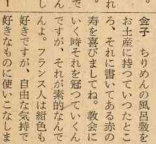 金子　ちりめんの風呂敷を
お土産に持つていつたとこ
ろ、それに書いてある赤の
寿を喜びましてね。教会に
いく時それを冠つていくん
ですが、それが素的なんで
すよ。フランス人は紺色も
好きですが、自由な気持で
好きなものに使いこなしま